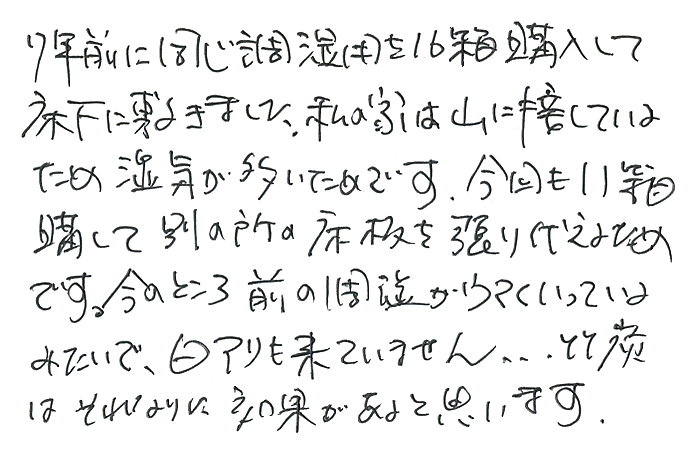 7年前に同じ調湿材を16箱購入して
床下に敷きました、私の家は山に接している
ため湿気が多いためです。今回も11箱
購して別の所の床板を張り代えるため
です。今のところ前の調湿がうまくいっている
みたいで、白アリも来ていません...竹炭
はそれなりに効果があると思います.